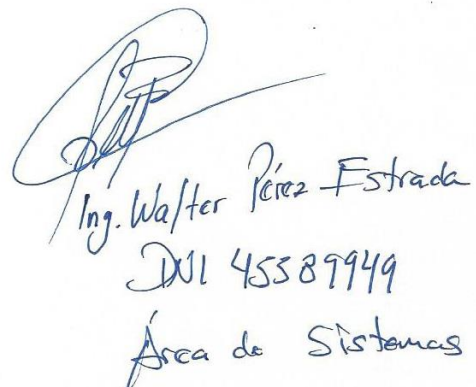 Ing. Walter Pérez Estrada
DNI 45589949
Área de Sistemas